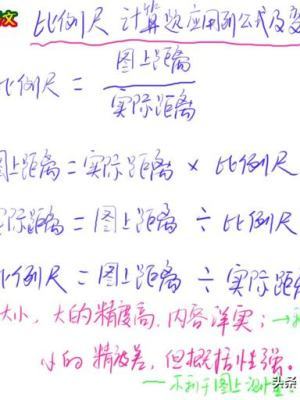 文 比例尺 计算题应用到公式及变
比例尺 = 图上距离
实际距离
图上距离=实际距离 × 比例尺
实际距离 = 图上距离 ÷ 比例尺
比例尺 = 图上距离 ÷ 实际距离
大小, 大的精度高, 内容详实; →
小的 精度差, 但概括性强。
→不利于图上测量
头条